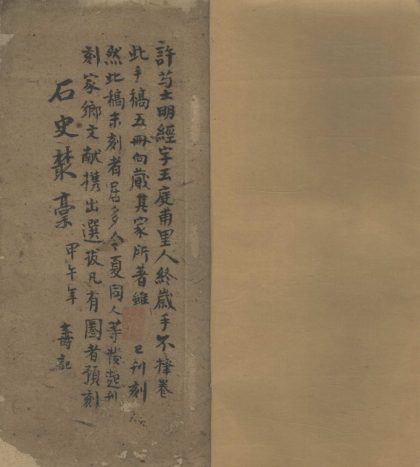 許芍士明經字玉庭甫里人終歲手不擇卷
此手稿五冊向藏其家所著雖已刊刻
然此稿未刻者居多今夏同人等發起刊
刻家鄉文献携出選拔凡有圈者預刻
石史叢稾 甲午年 壽記